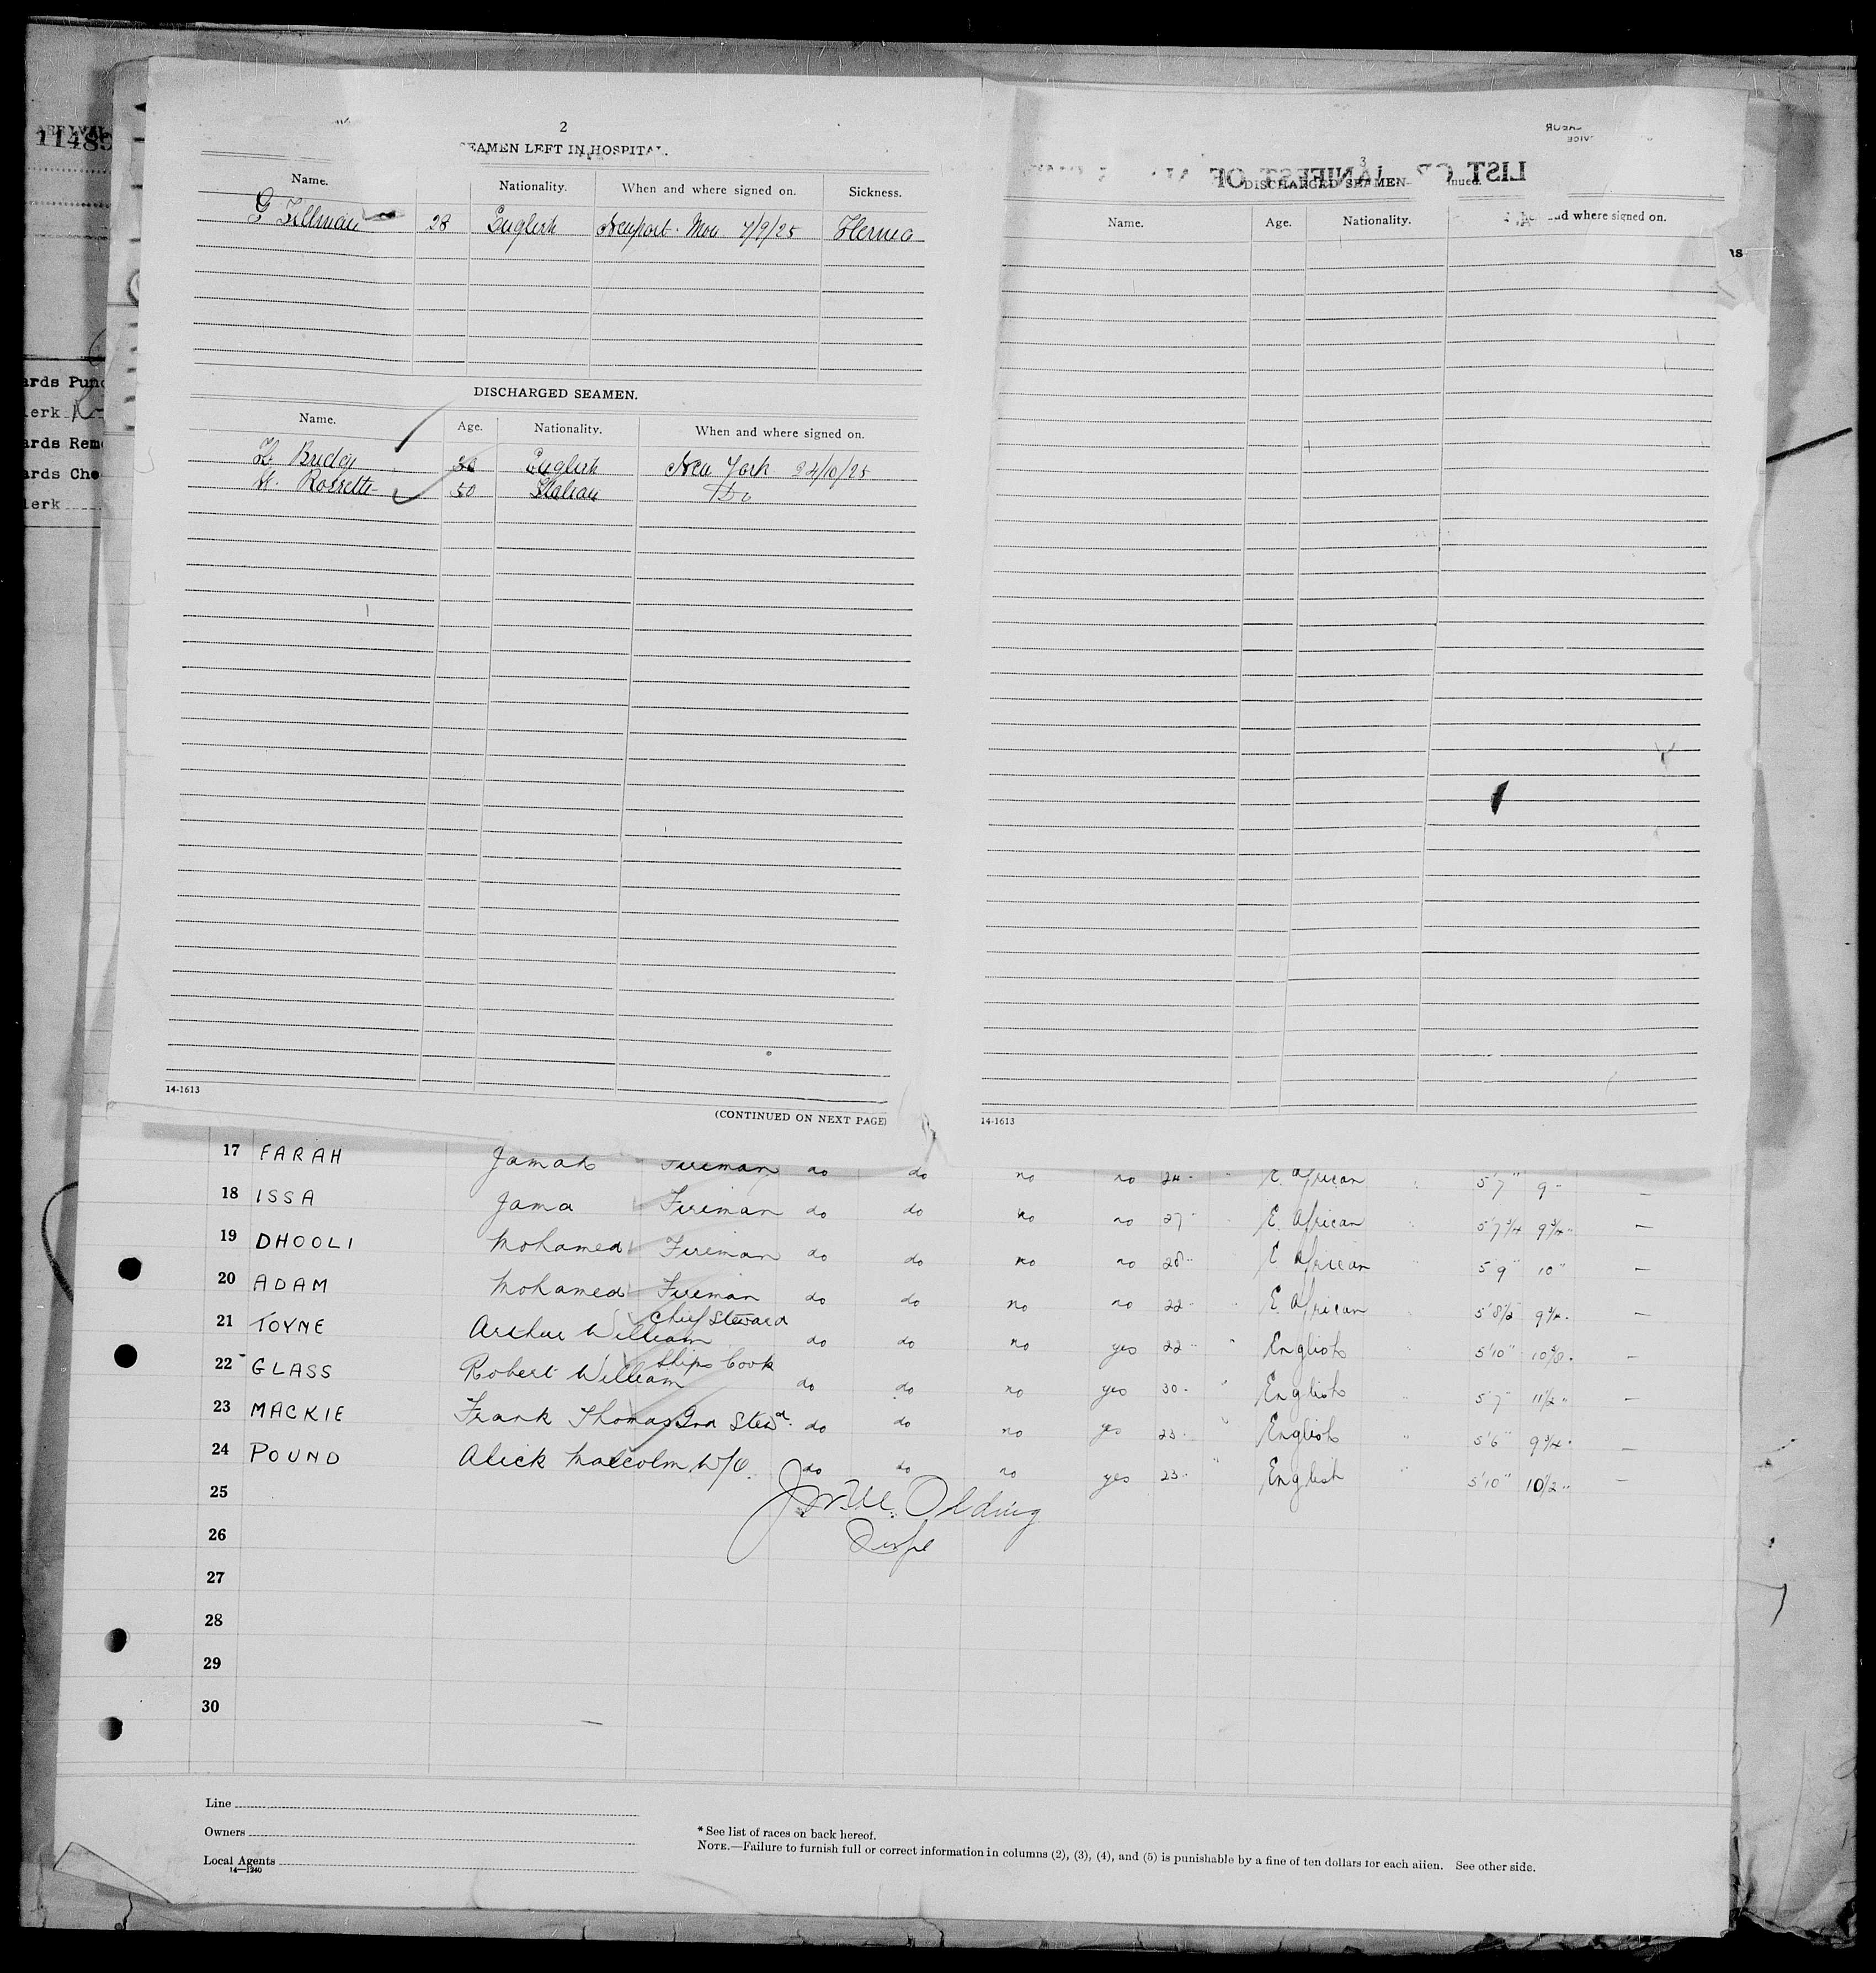 11489
ards Pun
lerk
ards Rem
ards Che
lerk
2
SEAMEN LEFT IN HOSPITAL.
Name. Nationality. When and where signed on. Sickness.
G 28 English Newport. Mon 7/9/25 Hernia
DISCHARGED SEAMEN.
Name. Age. Nationality. When and where signed on.
English New York 24/10/25
50 Italian Do
14-1613
(CONTINUED ON NEXT PAGE)
3
LIST OR MANIFEST OF
DISCHARGED SEAMEN— inued.
Name. Age. Nationality. and where signed on.
14-1613
17 FARAH Jamah Fireman do do no no 24 " E. African 5'7" 9 —
18 ISSA Jama Fireman do do no no 27 " E. African " 5'7 3/4 9 3/4 " —
19 DHOOLI Mohamed Fireman do do no no 28 " E African " 5 9" 10" —
20 ADAM Mohamed Fireman do do no no 22 " E. African 5'8 1/2 9 3/4 —
21 TOYNE Arthur William Chief Steward do do no yes 22 " English 5'10" —
22 GLASS Robert William Ships Cook do do no yes 30 " English " 5'7" 11 1/2 " —
23 MACKIE Frank Thomas 2nd Stewd. do do no yes 23 " English " 5'6" 9 3/4 —
24 POUND Alick Malcolm W/O. do do no yes 23 " English " 5'10" 10 1/2 " —
25 Olding
26
27
28
29
30
Line
Owners
Local Agents
14—1240
* See list of races on back hereof.
NOTE.—Failure to furnish full or correct information in columns (2), (3), (4), and (5) is punishable by a fine of ten dollars for each alien. See other side.